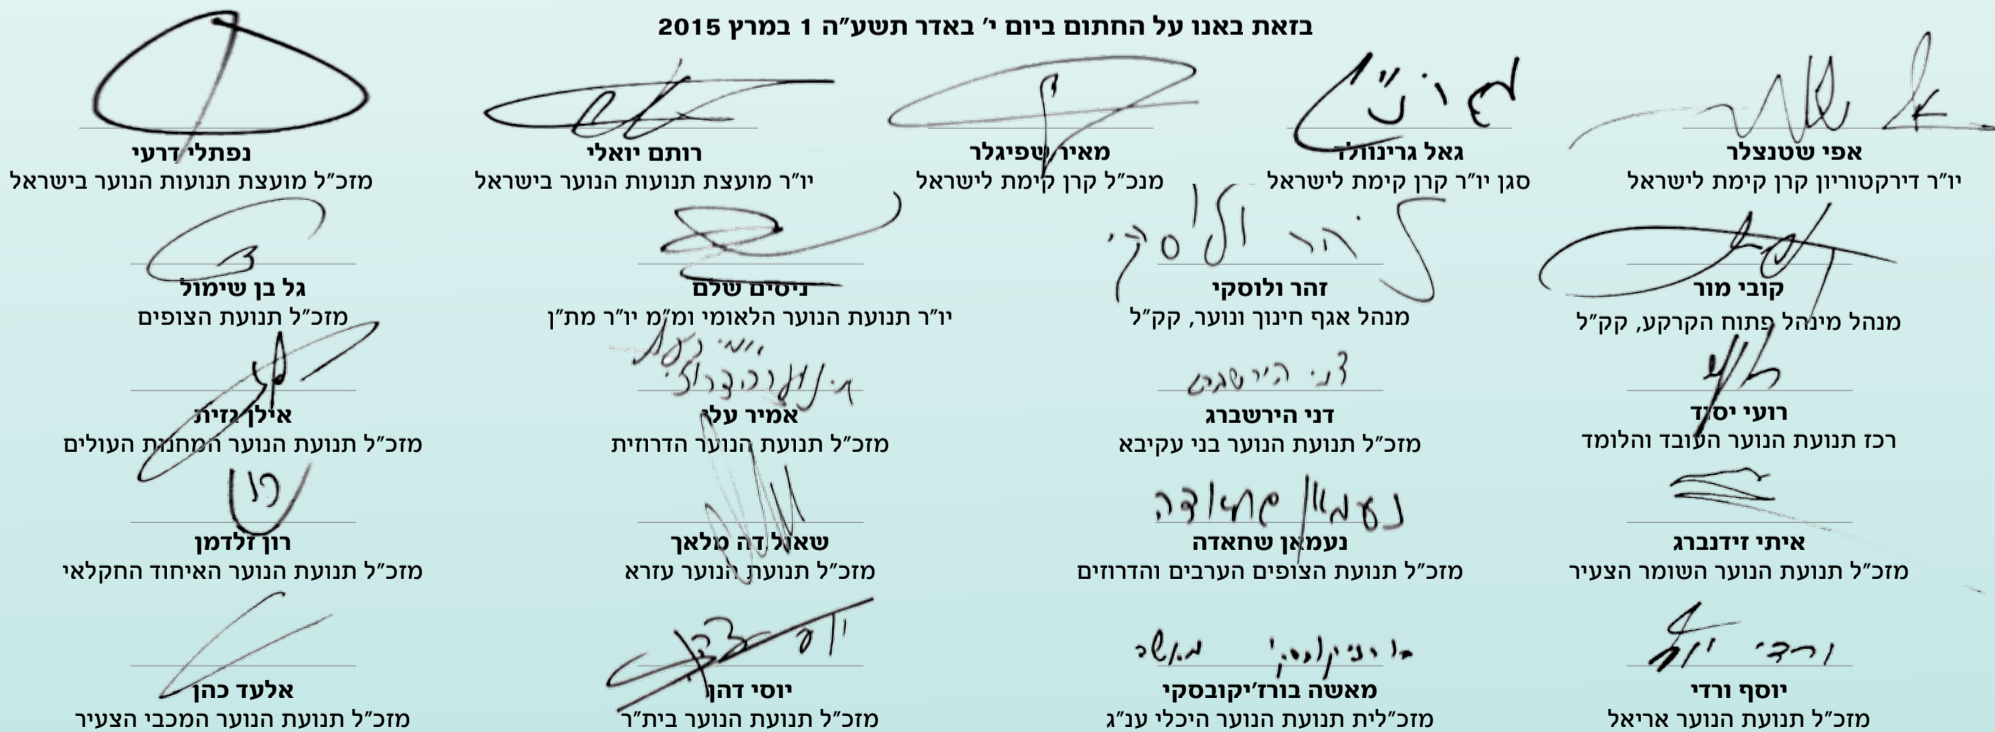 בזאת באנו על החתום ביום י׳ באדר תשע״ה 1 במרץ 2015
אפי שטנצלר
יו״ר דירקטוריון קרן קימת לישראל
גאל גרינוולד
סגן יו״ר קרן קימת לישראל
מאיר שפיגלר
מנכ״ל קרן קימת לישראל
רותם יואלי
יו״ר מועצת תנועות הנוער בישראל
נפתלי דרעי
מזכ״ל מועצת תנועות הנוער בישראל
קובי מור
מנהל מינהל פתוח הקרקע, קק״ל
זהר ולוסקי
זהר ולוסקי
מנהל אגף חינוך ונוער, קק״ל
ניסים שלם
יו״ר תנועת הנוער הלאומי ומ״מ יו״ר מת״ן
גל בן שימול
מזכ״ל תנועת הצופים
רועי יסוד
רכז תנועת הנוער העובד והלומד
דני הירשברג
דני הירשברג
מזכ״ל תנועת הנוער בני עקיבא
אמיר עלי
מזכ״ל תנועת הנוער הדרוזית
אילן גזית
מזכ״ל תנועת הנוער המחנות העולים
איתי זידנברג
מזכ״ל תנועת הנוער השומר הצעיר
נעמאן שחאדה
נעמאן שחאדה
מזכ״ל תנועת הצופים הערבים והדרוזים
שאול דה מלאך
מזכ״ל תנועת הנוער עזרא
רון
רון זלדמן
מזכ״ל תנועת הנוער האיחוד החקלאי
ורדי יוסף
יוסף ורדי
מזכ״ל תנועת הנוער אריאל
מאשה
מאשה בורז׳יקובסקי
מזכ״לית תנועת הנוער היכלי ענ״ג
יוסי דהן
מזכ״ל תנועת הנוער בית״ר
אלעד כהן
מזכ״ל תנועת הנוער המכבי הצעיר